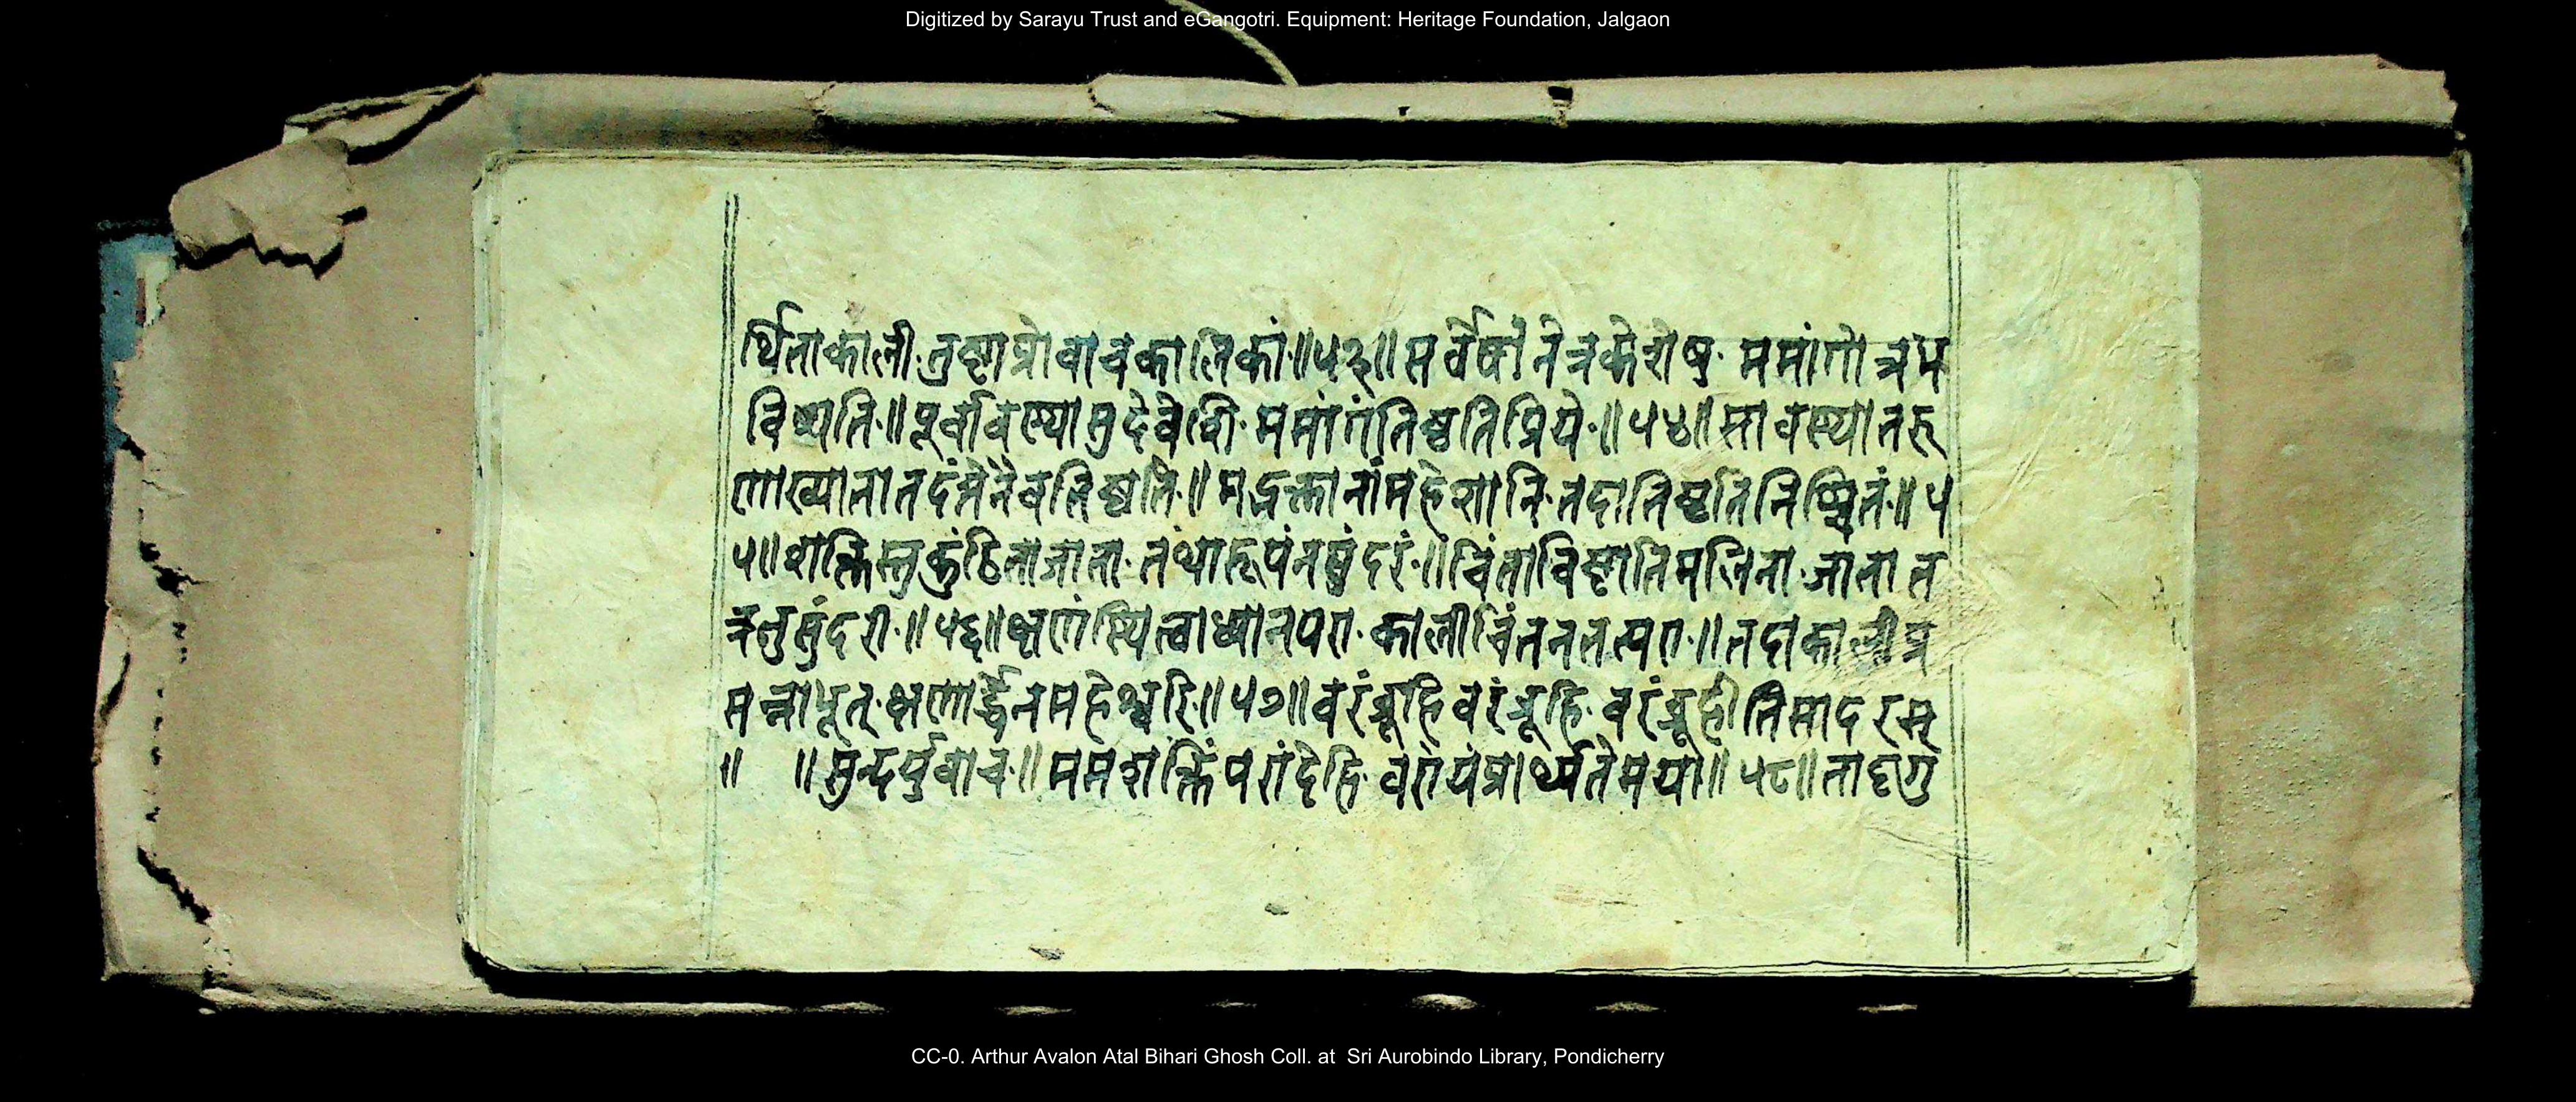 Digitized by Sarayu Trust and eGangotri. Equipment: Heritage Foundation, Jalgaon
र्थिताकाली तुष्टाप्रोवाचकालिकां ॥५३॥ सर्वेषां नेत्रकेशेषु ममांगोत्रभ
विष्यति ॥ पूर्वावस्थासुदेवेशी ममांगंतिष्ठतिप्रिये ॥ ५४॥ सावस्थातरु
णाख्यातातदंतेनैवतिष्ठति ॥ मद्भक्तानांमहेशानि तदातिष्ठतिनिश्चितं ॥ ५
५॥ शक्तिस्तुकुंठिताजाता तथारूपंनसुंदरं ॥ चिंताविष्टातिमलिना जातात
त्रतुसुंदरी ॥ ५६॥ क्षणंस्थित्वाध्यानपरा कालीचिंतनतत्परा ॥ तदाकालीप्र
सन्नाभूत् क्षणार्द्धेनमहेश्वरि ॥ ५७॥ वरंब्रूहि वरंब्रूहि वरंब्रूहीतिसादरम्
॥ ॥ सुन्दर्युवाच ॥ ममशक्तिं परांदेहि वरोयंप्रार्थ्यतेमया ॥ ५८॥ तादृगु
CC-0. Arthur Avalon Atal Bihari Ghosh Coll. at Sri Aurobindo Library, Pondicherry